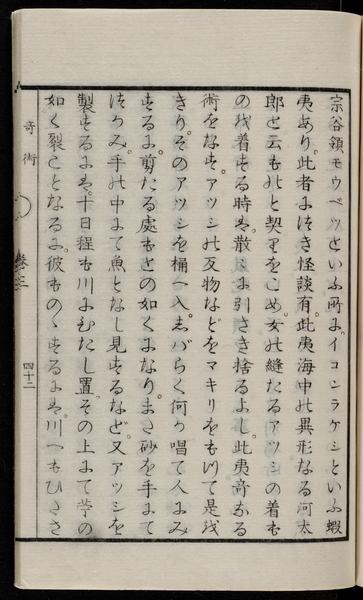 宗谷領モウベツといふ所に。イコンラケシといふ蝦
夷あり。此者につき怪談有。此夷海中の異形なる河太
郎と云ものと契りをこめ。女の縫たるアツシの着も
の我着する時は。散〻に引さき捨るよし。此夷奇なる
術をなす。アツシの反物などをマキリをもつて是我
きり。そのアツシを桶へ入。しばらく何か唱て人にみ
するに。剪たる處もとの如くになり。また砂を手にて
つかみ。手の中にて魚となし見するなど。又アツシを
製するには。十日程も川にひたし置。その上にて苧の
如く裂ことなるに。彼ものゝするには。川へもひたさ
奇術
巻三
四十二